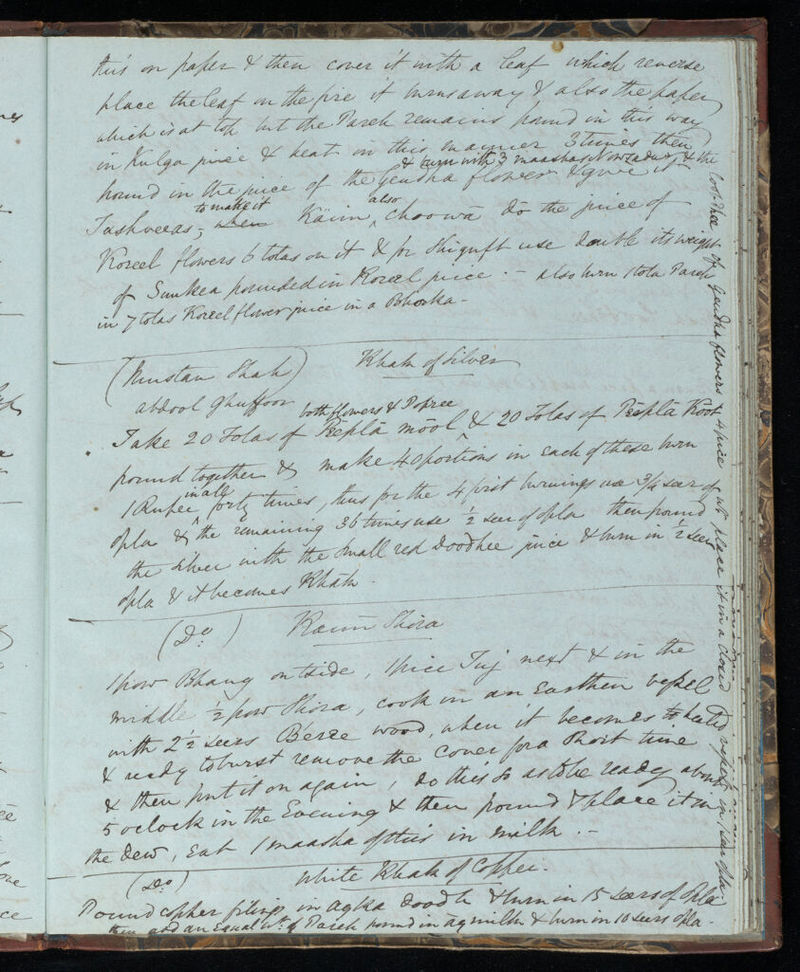 this on paper & then cover it with a leaf which reverse
place the leaf on the fire it burns away & also the paper
which is at top but the Pareh remains pound in this way
in Kulga juice & heat in this manner 3 times then
& burn with 3 maashas Nowsadur & the
pound in the juice of the Gendha flower & give it
to make it also
Tashveeas; when Käim, choowā do the juice of
Koreel flowers 6 tolas on it & for Shigruft use double its weight
of Sunkea pounded in Koreel juice. - also burn 1 tola Pareh
in 7 tolas Koreel flower juice in a Bhorka -
(Mustan Shah) Khak of Silver
abdool Ghuffoor
both flowers &
Take 20 Tolas of Peeplā mōol & 20 Tolas of Peeplā Root
pound together & make 40 portions in each of these burn
in all
1 Rupee forty times, thus for the 4 first burnings use 3/4 seer of
opla & the remaining 36 times use ½ seer of opla then pound
the silver with the small red Doodhee juice & burn in ½ seer
opla & it becomes Khāk.
(Do) Kaim Shora
1 pow Bhang outside, 1 pice Tuj next & in the
middle ½ pow Shora, cook in an Earthen vessel
with 2½ seers Beree wood, when it becomes heated
& ready to burst remove the cover for a short time
& then put it on again, do this so as to be ready about
5 oclock in the Evening & then pound & place it in
the Dew, Eat 1 maasha of this in milk. -
(Do) White Khak of Copper.
Pound copper filings in agka doodh & burn in 15 seers of opla
then add an equal wt. of Pareh pound in ag milk & burn in 10 seers opla.
Doodhee of Gendha flowers & 4 pice wt place it in a closed vessel in 1 seer opla.